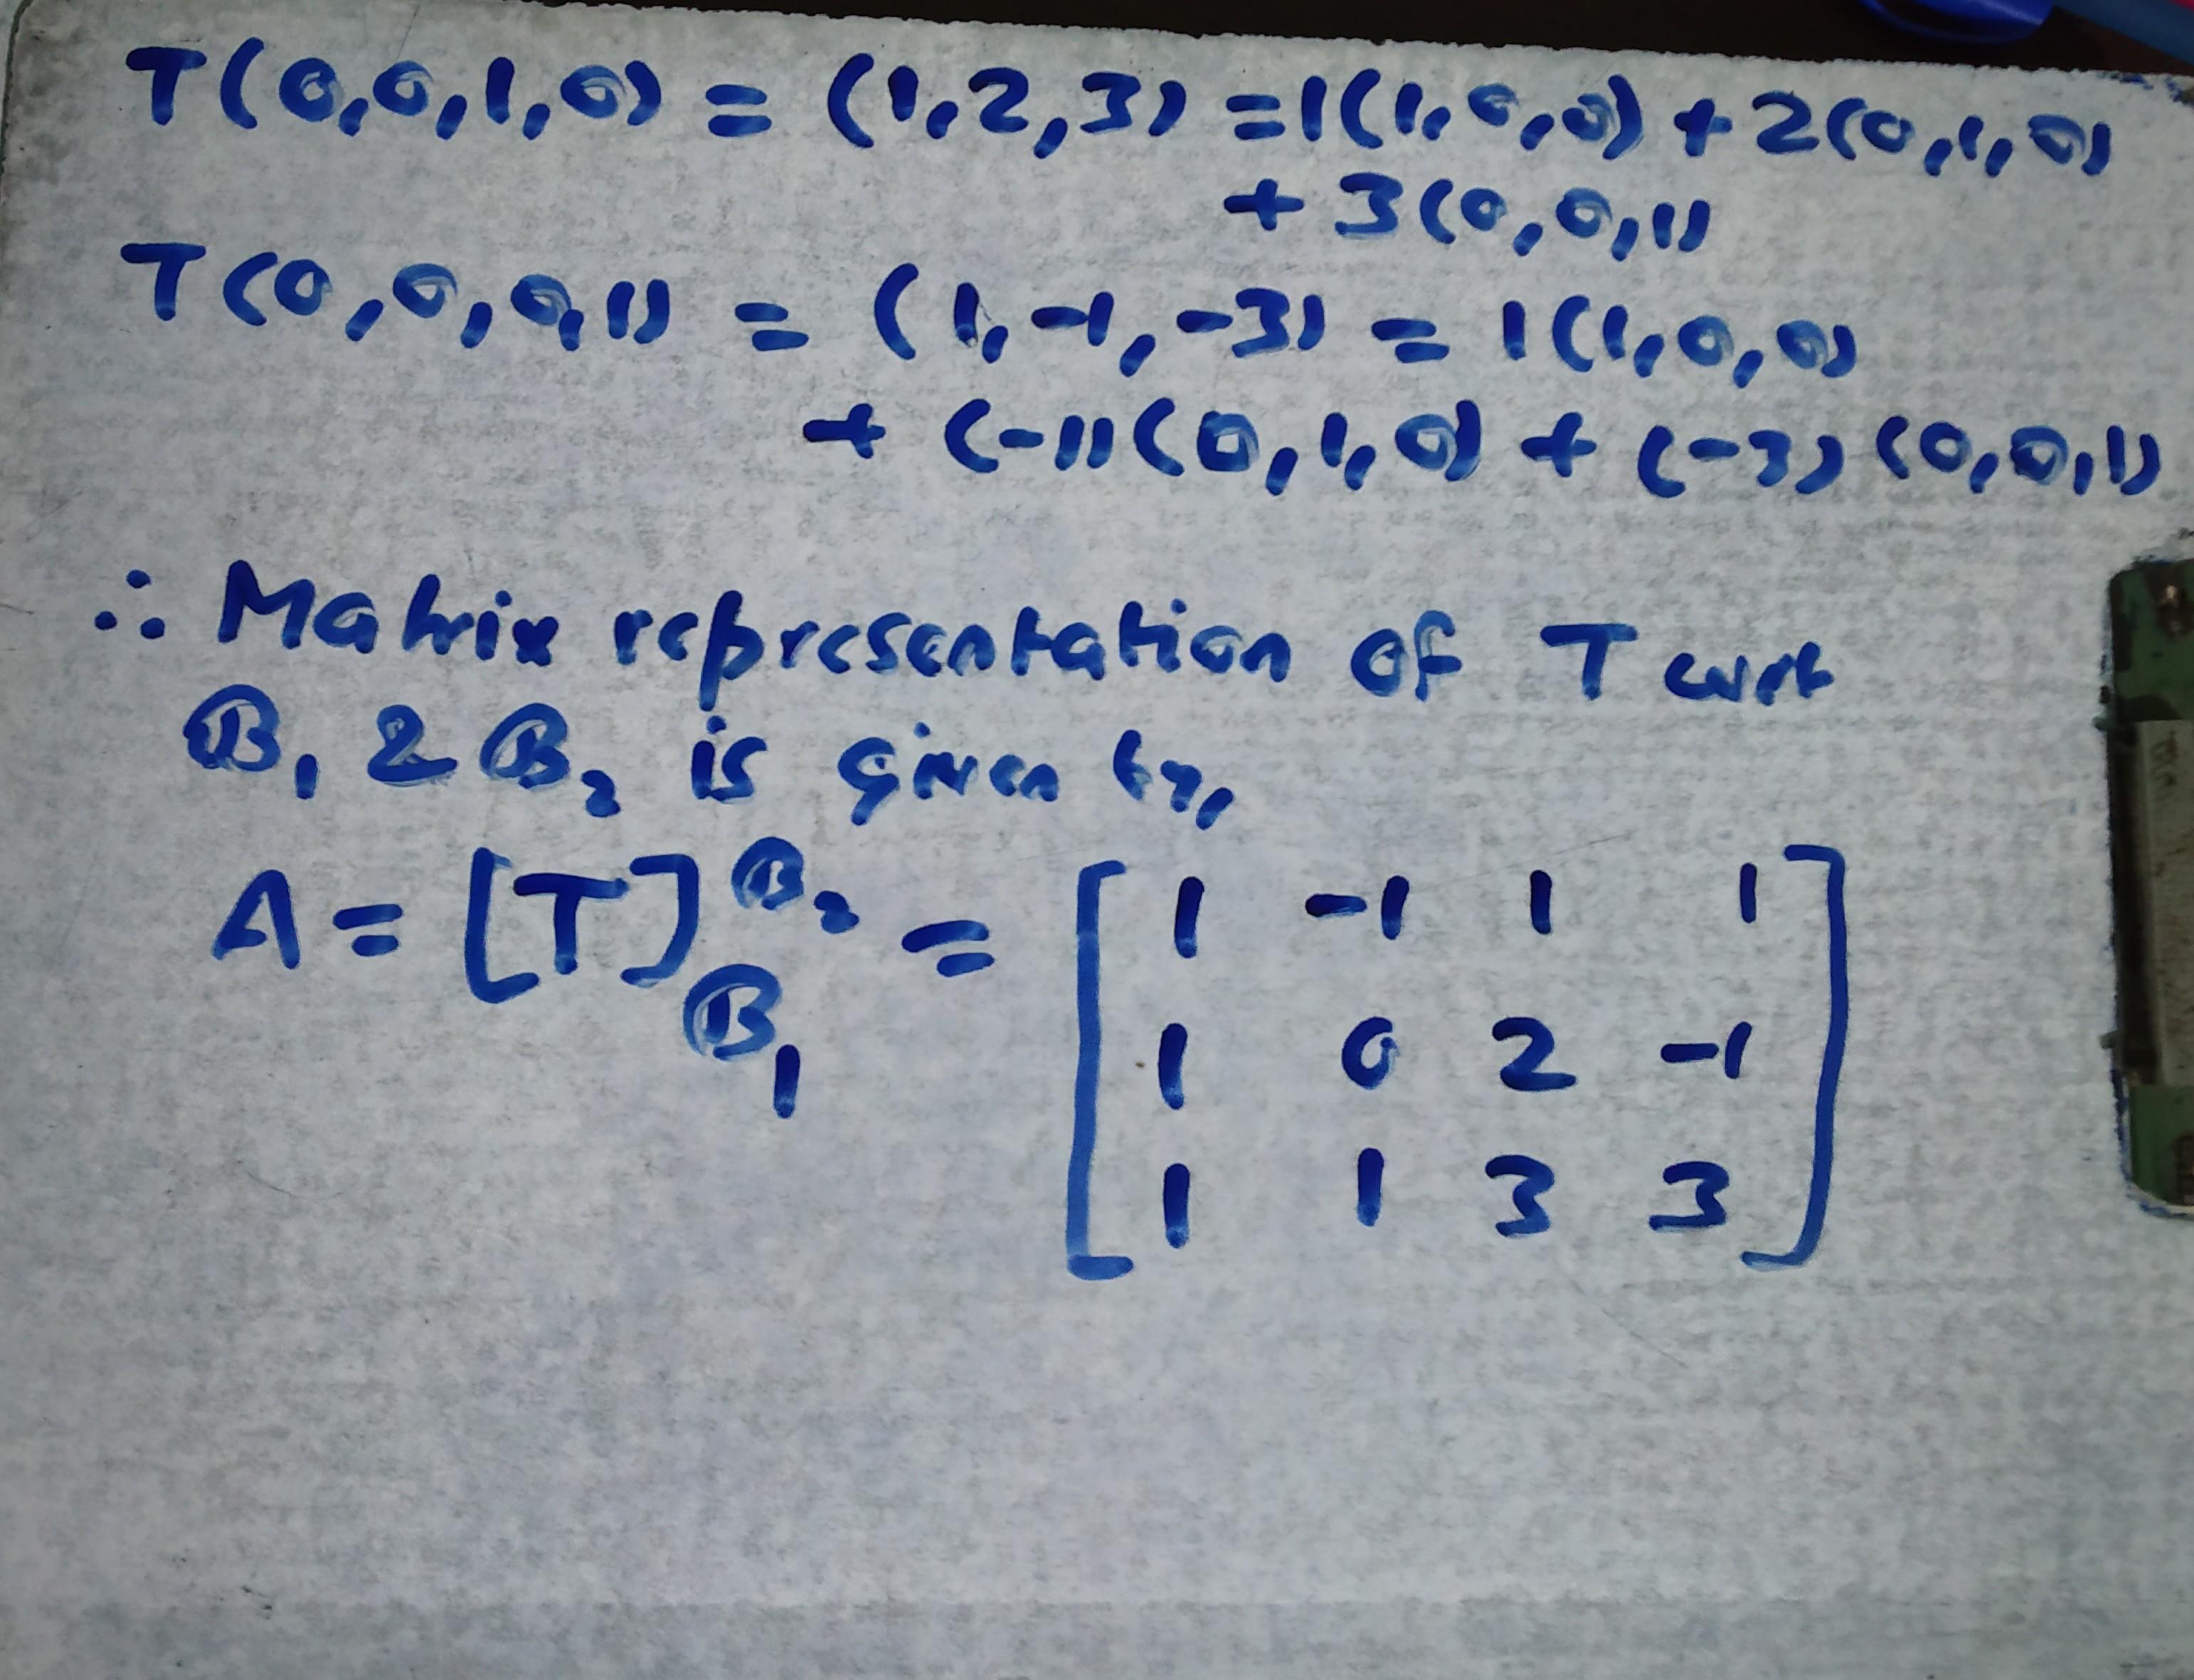 T(0,0,1,0) = (1,2,3) = 1(1,0,0) + 2(0,1,0)
+ 3(0,0,1)
T(0,0,0,1) = (1,-1,-3) = 1(1,0,0)
+ (-1)(0,1,0) + (-3)(0,0,1)
∴ Matrix representation of T wrt
B₁ & B₂ is given by,
A = [T]^{B₂}_{B₁} = [ 1 -1 1 1
1 0 2 -1
1 1 3 3 ]